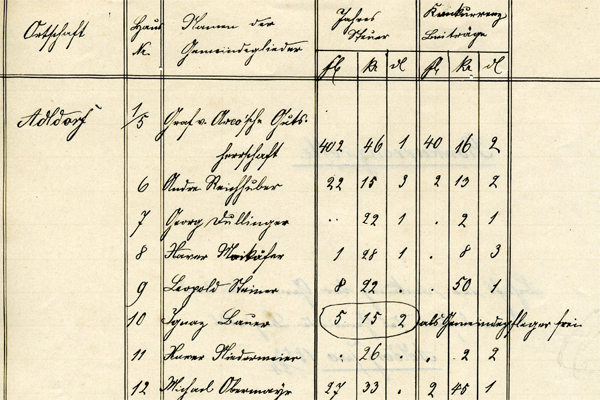 Ortschaft Haus Nr. Namen der Gemeindeglieder Jahres Steuer Konkurrenz Beiträge
fl kr dl fl kr dl
Adldorf 1/5 Graf v. Arco'sche Guts-
herrschaft 402 46 1 40 16 2
6 Andre Reichhuber 22 15 3 2 13 2
7 Georg Dullinger .. 22 1 . 2 1
8 Xaver Maikäfer 1 28 1 . 8 3
9 Leopold Steiner 8 22 . . 50 1
10 Ignaz Bauer 5 15 2 als Gemeindepfleger frei
11 Xaver Niedermeier . 26 . . 2 2
12 Michael Obermayr 27 33 . 2 45 1